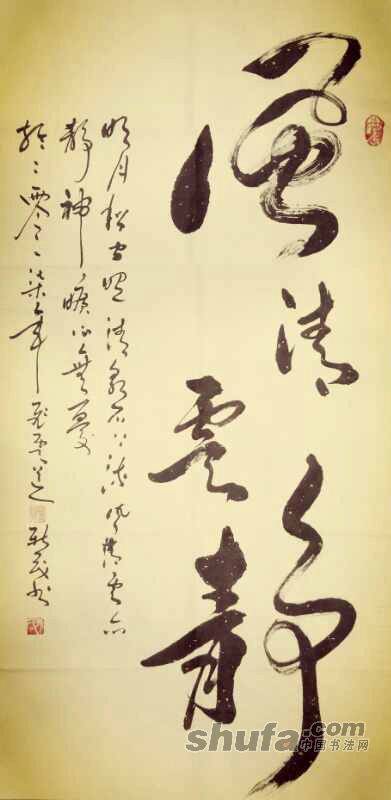 風清雲靜
明月松照清泉石上流風清雲亦
靜神曠心無憂
於二零柒年
shufa.com
中国书法网